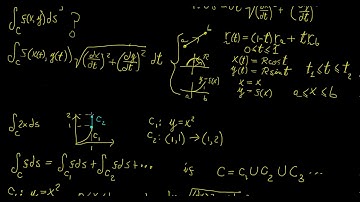 ∫_C f(x,y)ds ?
∫_C f(x(t), y(t)) √((dx/dt)²+(dy/dt)²) dt
a b
r(t)=(1-t)r_a + t r_b
0≤t≤1
R
x(t) = Rcost
y(t) = Rsint t_1≤t≤t_2
y=f(x)
a b
x=x
y=f(x) a≤x≤b
∫_C 2xds
2
1
C_2
C_1
1
C_1: y=x²
C_2: (1,1)→(1,2)
∫_C fds = ∫_{C_1} fds + ∫_{C_2} fds + ... if C = C_1 ∪ C_2 ∪ C_3 ...
C_1: y=x²